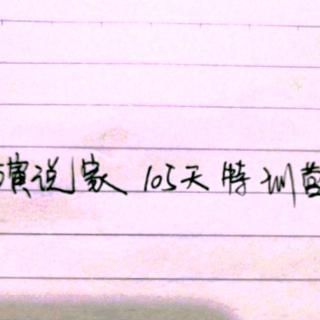 演说家 105天特训营